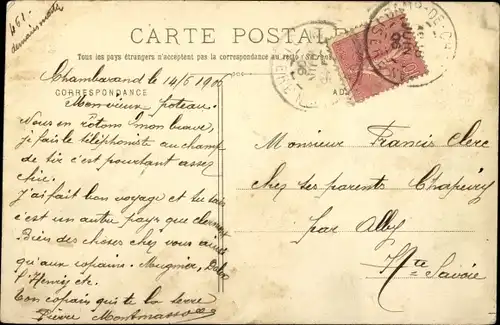 461.
CARTE POSTALE
Tous les pays étrangers n'acceptent pas la correspondance au recto (Se
Chambarand le 14/6 1906
CORRESPONDANCE
Mon vieux poteau.
Nous en rotons mon brave,
je fais le téléphoniste au champ
de tir c'est pourtant assez
chic.
j'ai fait bon voyage et tu sais
c'est un autre pays que
Bien des choses chez vous ainsi
qu'aux copains. Mugnier,
l'Henri, etc.
Ton copain qui te la serre
Pierre Montmasson
AD
CAMP-DE-CH
Monsieur Francis Clerc
chez ses parents Chapeiry
par Alby
Hte Savoie